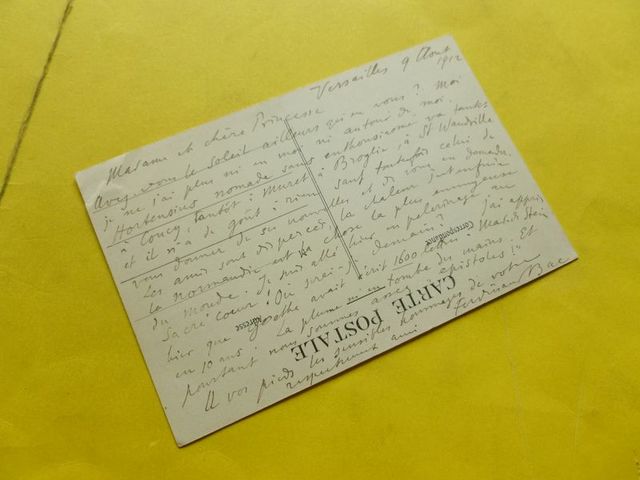 Versailles 9 Aout
1912
Madame et chère Princesse
Avez vous le soleil ailleurs qu'en vous? Moi
je ne l'ai plus ni en moi ni autour de moi.
Hortensius nomade sans enthousiasme va tantôt
à Coucy, tantôt à Muret à Broglie, à St Wandrille
et il n'a de goût à rien sauf toutefois celui de
vous donner de ses nouvelles et de vous en demander.
Les amis sont dispersés, la chaleur
la Normandie est la chose la plus ennuyeuse
du monde. Je suis allé hier en pèlerinage au
Sacré Coeur! Où serai-je demain? J'ai appris
hier que Goethe avait écrit 1600 lettres à Mad. de Stein
en 10 ans. La plume tombe des mains. Et
pourtant nous sommes assez "epistoles"!
A vos pieds les sensibles hommages de votre
respectueux ami Ferdinand Bac
Correspondance
CARTE POSTALE
Adresse